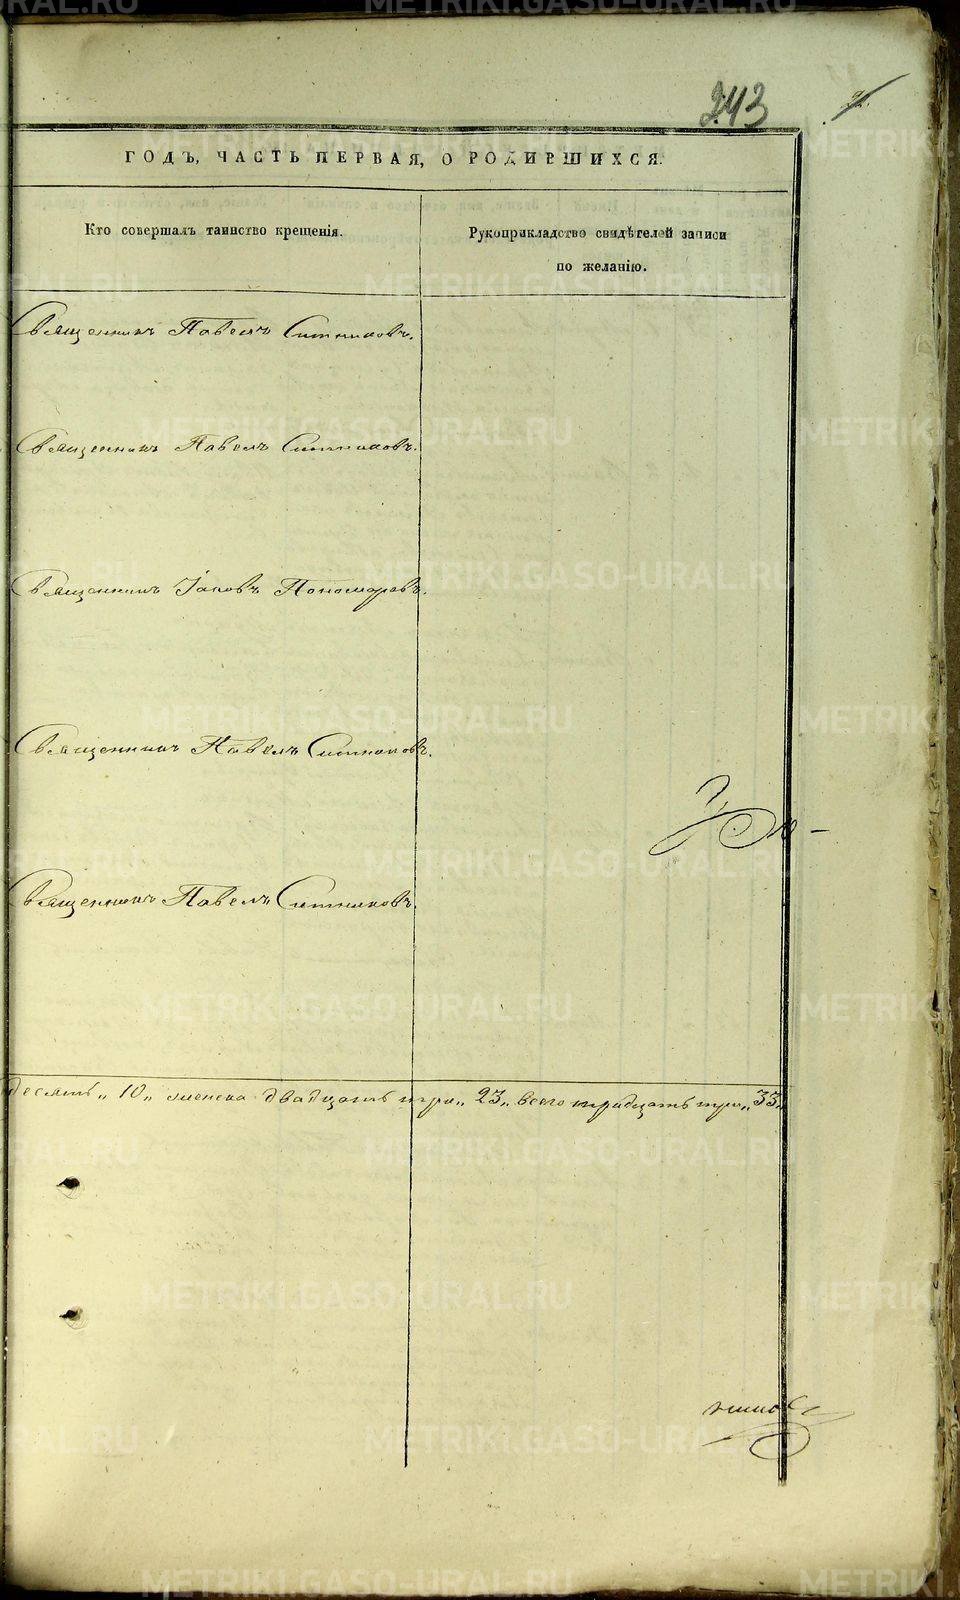 243
ГОДЪ, ЧАСТЬ ПЕРВАЯ, О РОДИВШИХСЯ.
Кто совершалъ таинство крещенія.
Рукоприкладство свидѣтелей записи
по желанію.
Священникъ Павелъ Ситниковъ.
Священникъ Павелъ Ситниковъ.
Священникъ Іаковъ Пономаревъ.
Священникъ Павелъ Ситниковъ.
Священникъ Павелъ Ситниковъ.
десять „ 10 „ женска двадцать три „ 23 „ всего тридцать три „ 33 „
METRIKI.GASO-URAL.RU